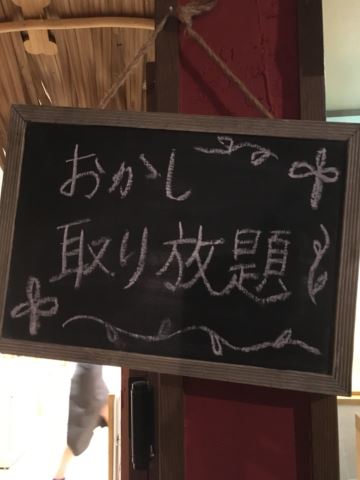 おかし
取り放題